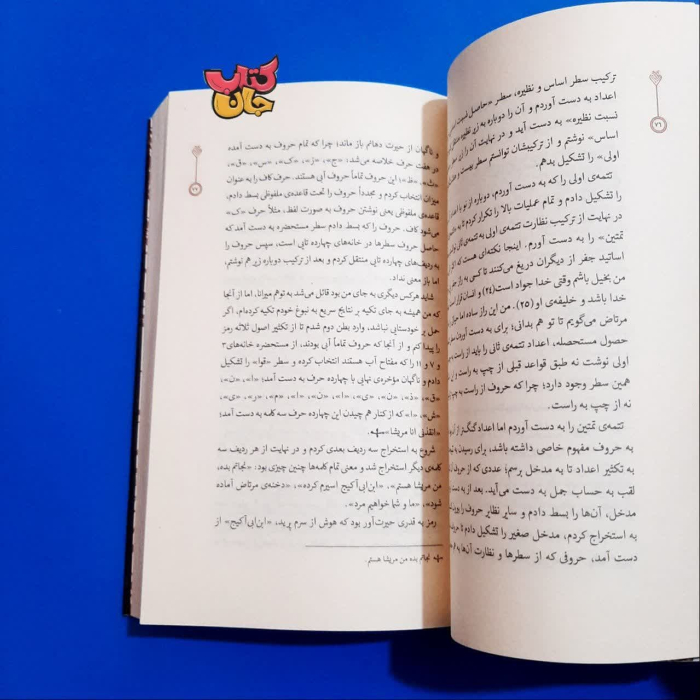 ترکیب سطر اساس و نظیره، سطر «حاصل نسبت
اعداد به دست آوردم و آن را دوباره به زیر نظیره
نسبت نظیره» به دست آید و در نهایت آن را زیر
اساس» نوشتم و از ترکیبشان توانستم سطر بیست و
اولی» را تشکیل بدهم.
تتمه‌ی اولی را که به دست آوردم، دوباره از نو با
را تشکیل دادم و تمام عملیات بالا را تکرار کردم تا
در نهایت از ترکیب نظارت تتمه‌ی اولی به تتمه‌ی ثانی
تمتین» را به دست آورم. اینجا نکته‌ای هست که
اساتید جفر از دیگران دریغ می‌کنند تا کسی به راز
من بخیل باشم وقتی خدا جواد است(۲۴) و انسان قرار است
خدا باشد و خلیفه‌ی او (۲۵). من این راز ساده اما
مرتاض می‌گویم تا تو هم بدانی؛ برای به دست آوردن
حصول مستحصله، اعداد تتمه‌ی ثانی را باید از راست
اولی نوشت نه طبق قواعد قبلی از چپ به راست و
همین سطر وجود دارد؛ چرا که حروف از راست به چپ
نه از چپ به راست.
تتمه‌ی تمتین را به دست آوردم اما اعداد گنگ‌تر از
به حروف مفهوم خاصی داشته باشد، برای رسیدن به
به تکثیر اعداد تا به مدخل برسم؛ عددی که از حروف
لقب به حساب جمل به دست می‌آید. بعد از به دست
مدخل، آن‌ها را بسط دادم و سایر نظایر حروف را
به استخراج کردم، مدخل صغیر را تشکیل دادم تا
دست آمد، حروفی که از سطرها و نظارت آن‌ها به
۷۶
کتاب
جان
و ناگهان از حیرت دهانم باز ماند؛ چرا که تمام حروف به دست آمده
در هفت حرف خلاصه می‌شد: «ج»، «ز»، «ک»، «س»، «ق»،
«ث»، «ظ»؛ این حروف تماماً حروف آبی هستند. حرف کاف را به عنوان
میزان انتخاب کردم و مجدداً حروف را تحت قاعده‌ی ملفوظی بسط دادم.
قاعده‌ی ملفوظی یعنی نوشتن حروف به صورت لفظ، مثلاً حرف «ک»
می‌شود کاف. حروف را که بسط دادم سطر مستحضره به دست آمد که
حاصل حروف سطرها در خانه‌های چهارده تایی است، سپس حروف را
به ردیف‌های چهارده تایی منتقل کردم و بعد از ترکیب دوباره زیر هم نوشتم،
اما باز معنی نداد.
شاید هرکس دیگری به جای من بود قائل می‌شد به توهم میرانا، اما از آنجا
که من همیشه به جای تکیه بر نتایج سریع به نبوغ خودم تکیه کرده‌ام، اگر
حمل بر خودستایی نباشد، وارد بطن دوم شدم تا از تکثیر اصول ثلاثه رمز
را پیدا کنم و از آنجا که حروف تماماً آبی بودند، از مستحضره خانه‌های ۳
و ۷ و ۱۱ را که مفتاح آب هستند انتخاب کرده و سطر «قوا» را تشکیل
دادم و ناگهان مؤخره‌ی نهایی با چهارده حرف به دست آمد: «ا»، «ن»،
«ق»، «ذ»، «ن»، «ی»، «ا»، «ن»، «ا»، «م»، «ر»، «ی»،
«ش»، «ا» که از کنار هم چیدن این چهارده حرف سه کلمه به دست آمد:
«انقذنی انا مریشا»
شروع به استخراج سه ردیف بعدی کردم و در نهایت از هر ردیف سه
کلمه‌ی دیگر استخراج شد و معنی تمام کلمه‌ها چنین چیزی بود: «نجاتم بده،
من مریشا هستم»، «این‌ابی‌آکیج اسیرم کرده»، «دخنه‌ی مرتاض آماده
شود»، «ما و شما خواهیم مرد».
رمز به قدری حیرت‌آور بود که هوش از سرم پرید، «این‌ابی‌آکیج» از
نجاتم بده من مریشا هستم.